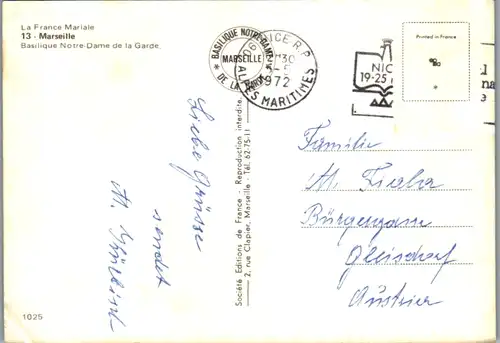 La France Mariale
13 - Marseille
Basilique Notre-Dame de la Garde.
BASILIQUE NOTRE-DAME
MARSEILLE
* DE LA GARDE *
NICE R.P.
1972
ALPES MARITIMES
NIC
19-25
Printed in France
Liebe Grüsse
sendet
M.
Société Editions de France - Reproduction interdite.
2, rue Clapier, Marseille - Tél. 62-75-11
Familie
M.
Bürgergasse
Gleisdorf
Austria
1025